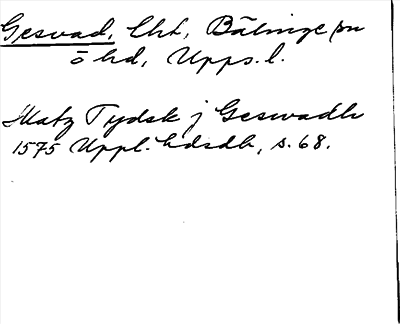 Gesvad, Cht, Bälinge sn
ö hd, Upps. l.
Matz Tydsk j Geswadh
1575 Uppl. hdsdb, s. 68.